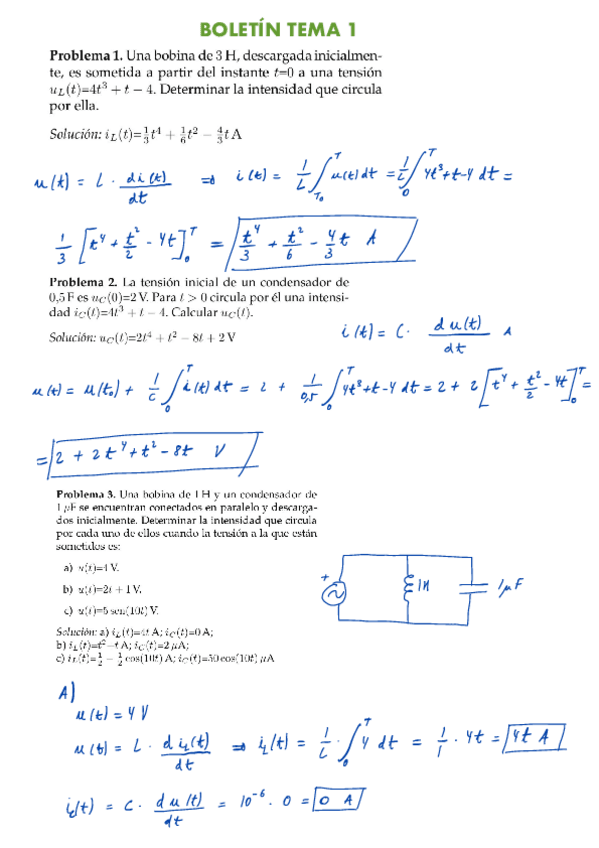 BOLETÍN TEMA 1
Problema 1. Una bobina de 3 H, descargada inicialmen-
te, es sometida a partir del instante t=0 a una tensión
u_L(t)=4t³ + t − 4. Determinar la intensidad que circula
por ella.
Solución: i_L(t)=1/3 t⁴ + 1/6 t² − 4/3 t A
u(t) = L · di(t)/dt ⇒ i(t) = 1/L ∫_{T₀}^{T} u(t) dt = 1/L ∫_0^T 4t³+t-4 dt =
1/3 [t⁴ + t²/2 - 4t]_0^T = t⁴/3 + t²/6 - 4/3 t A
Problema 2. La tensión inicial de un condensador de
0,5 F es u_C(0)=2 V. Para t > 0 circula por él una intensi-
dad i_C(t)=4t³ + t − 4. Calcular u_C(t).
Solución: u_C(t)=2t⁴ + t² − 8t + 2 V
i(t) = C · du(t)/dt A
u(t) = u(t₀) + 1/C ∫_0^T i(t) dt = 2 + 1/0,5 ∫_0^T 4t³+t-4 dt = 2 + 2 [t⁴ + t²/2 - 4t]_0^T =
= 2 + 2t⁴ + t² - 8t V
Problema 3. Una bobina de 1 H y un condensador de
1 μF se encuentran conectados en paralelo y descarga-
dos inicialmente. Determinar la intensidad que circula
por cada uno de ellos cuando la tensión a la que están
sometidos es:
a) u(t)=4 V.
b) u(t)=2t + 1 V.
c) u(t)=5 sen(10t) V.
Solución: a) i_L(t)=4t A; i_C(t)=0 A;
b) i_L(t)=t²+t A; i_C(t)=2 μA;
c) i_L(t)=1/2 − 1/2 cos(10t) A; i_C(t)=50 cos(10t) μA
+
1H
1μF
A)
u(t) = 4 V
u(t) = L · di_L(t)/dt ⇒ i_L(t) = 1/L · ∫_0^T 4 dt = 1/1 · 4t = 4t A
i_c(t) = C · du(t)/dt = 10⁻⁶ · 0 = 0 A